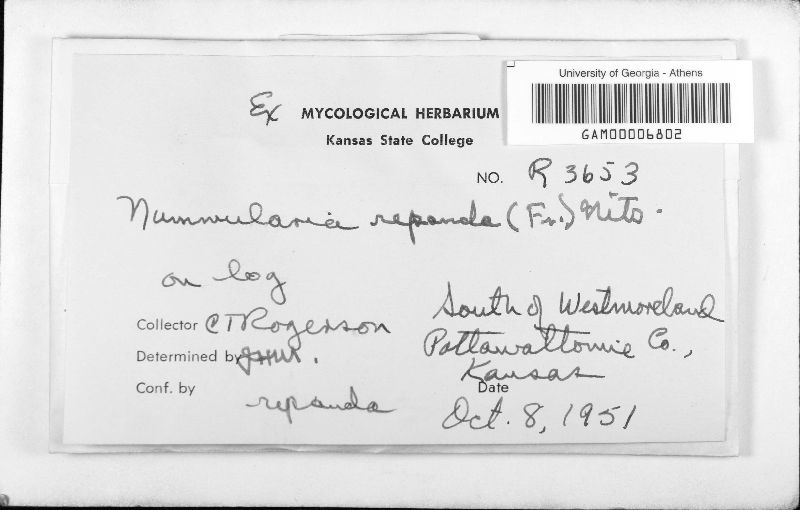 University of Georgia - Athens
GAM00006802
Ex MYCOLOGICAL HERBARIUM
Kansas State College
NO. R 3653
Nummularia repanda (Fr.) Nits.
on log
Collector CT Rogerson
South of Westmoreland
Pottawattomie Co.,
Kansas
Determined by JHM.
Conf. by
repanda
Date
Oct. 8, 1951